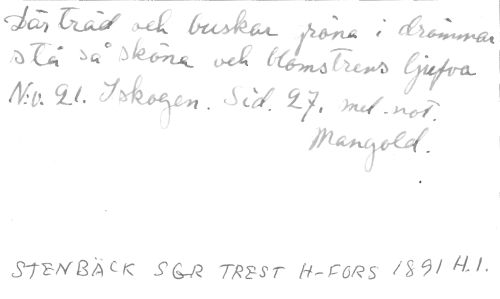 Där träd och buskar gröna i drömmar
stå så sköna och blomstrens ljufva
N:o. 21. I skogen. Sid. 27. med not.
Mangold.
STENBÄCK SGR TREST H-FORS 1891 H.I.